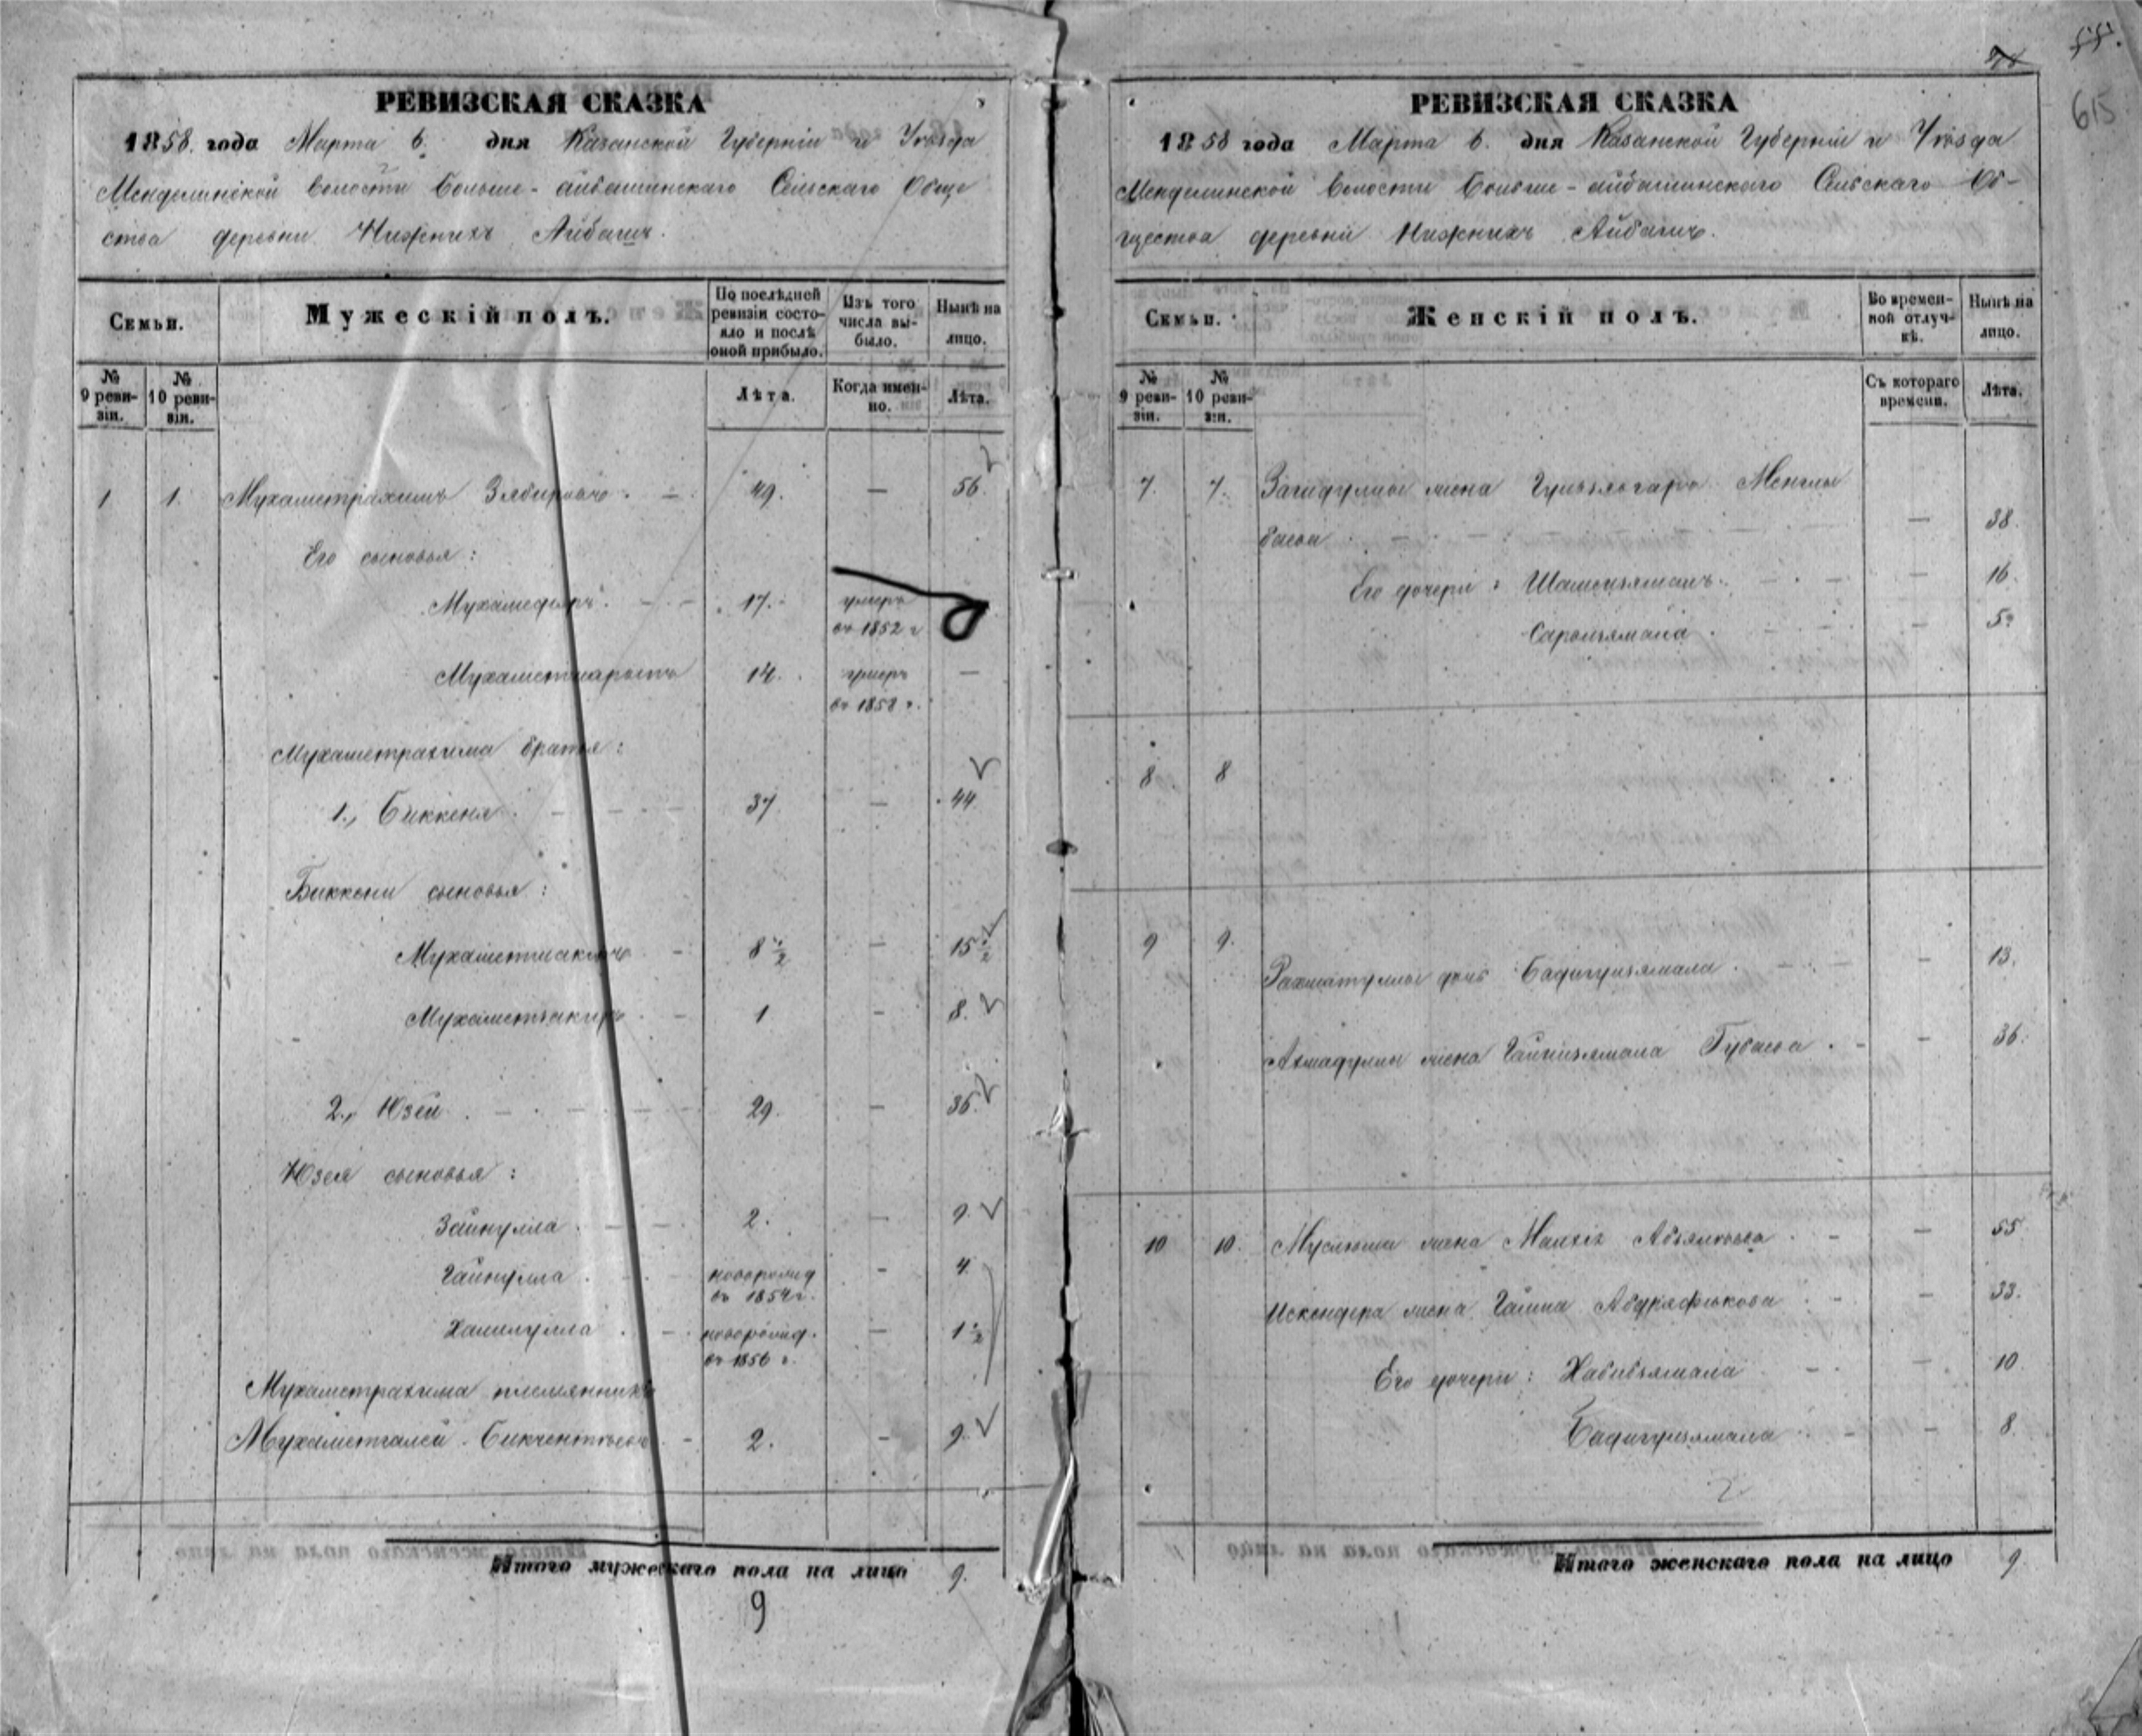 55.
615
РЕВИЗСКАЯ СКАЗКА
1858. года Марта 6. дня Казанской Губерніи и Уѣзда
Менделинской Волости Больше-айбашинскаго Сельскаго Обще
ства деревни Нижнихъ Айбашъ.
Семьи.
Мужескій полъ.
По послѣдней ревизіи состояло и послѣ оной прибыло.
Изъ того числа выбыло.
Нынѣ на лицо.
№ 9 ревизіи.
№ 10 ревизіи.
Лѣта.
Когда именно.
Лѣта.
1 1. Мухаметрахимъ Зябировъ. 49. — 56.
Его сыновья:
Мухамедяръ. 17. умеръ въ 1852 г
Мухаметшарыпъ 14. умеръ въ 1858 г. —
Мухаметрахима братья:
1., Биккеня. 37 — 44.
Биккени сыновья:
Мухаметшакиръ 8 1/2 — 15 1/2
Мухаметзакиръ 1 — 8.
2., Юзей. 29. — 36.
Юзея сыновья:
Зайнулла 2. — 9.
Гайнулла новорожд въ 1854 г. — 4.
Халиулла новорожд. въ 1856 г. — 1 1/2
Мухаметрахима племянникъ
Мухаметгалей Бикчентѣевъ 2. — 9.
Итого мужескаго пола на лицо 9.
9
РЕВИЗСКАЯ СКАЗКА
1858 года Марта 6. дня Казанской Губерніи и Уѣзда
Менделинской Волости Больше-айбашинскаго Сельскаго Об-
щества деревни Нижнихъ Айбашъ.
Семьи.
Женскій полъ.
Во временной отлучкѣ.
Нынѣ на лицо.
№ 9 ревизіи.
№ 10 ревизіи.
Съ котораго времени.
Лѣта.
7. 7. Загидуллы жена Менглы
баева — 38.
Его дочери: Шамсизямалъ. — 16.
— 5
8 8
9 9. Рахматуллы дочь Бадигулзямала — 13.
Ахмадуллы жена Гайнизямала Губаева. — 36.
10 10. Муслюма жена — 55
Искендера жена — 33.
Его дочери: Хабибзямала — 10.
Бадигулзямала — 8.
Итого женскаго пола на лицо 9